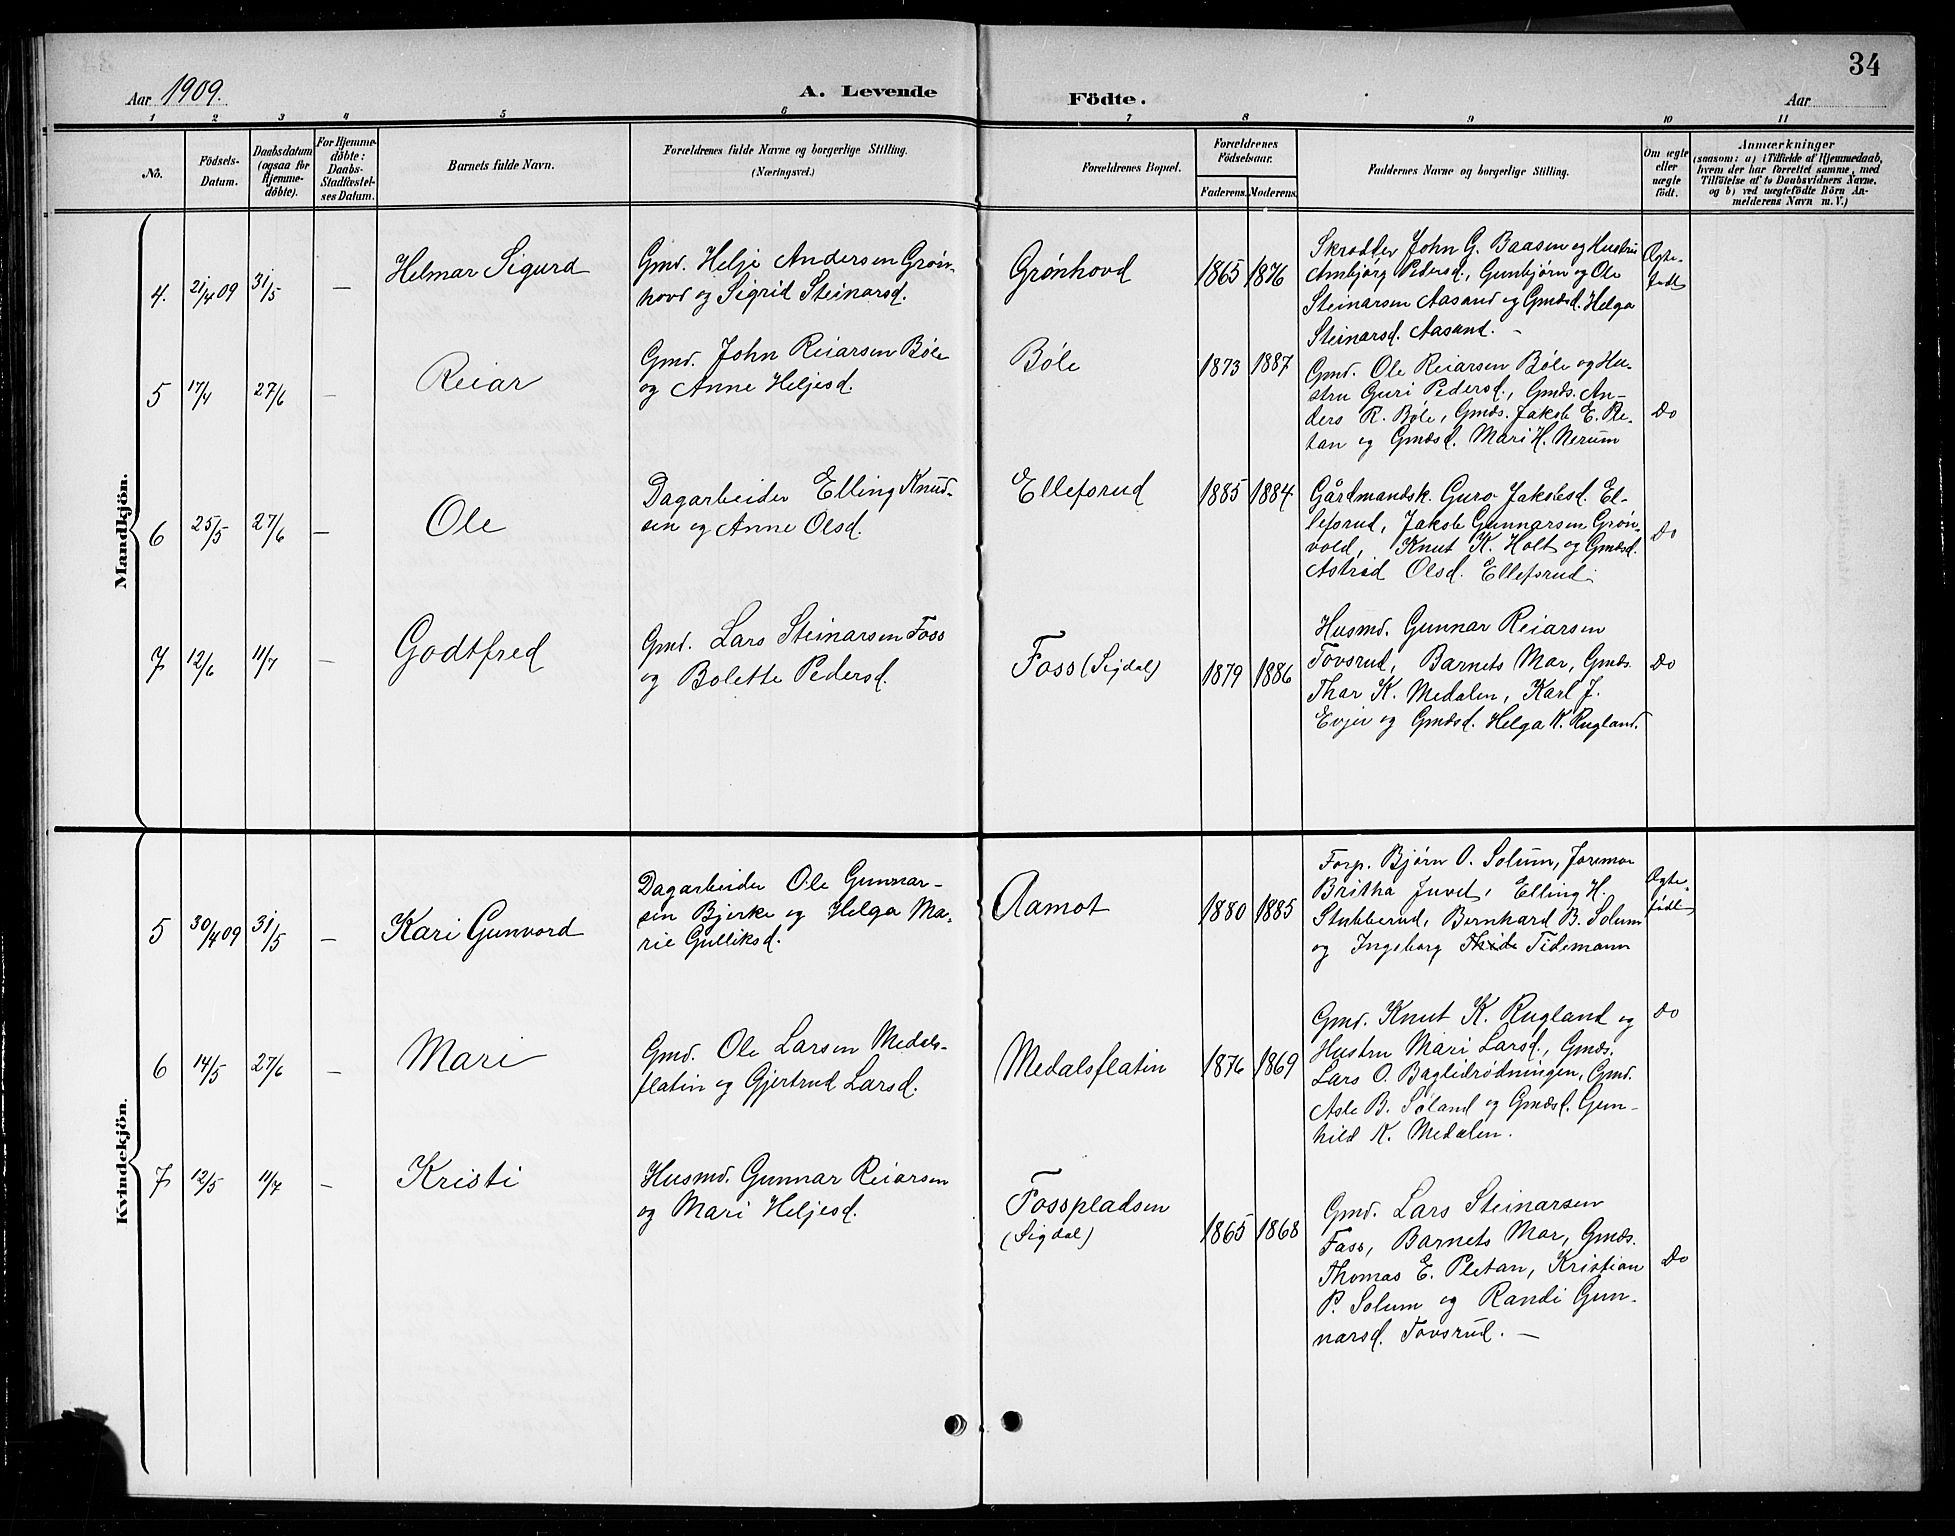 34
Aar 1909.
A. Levende
Födte.
Aar
1 2 3 4 5 6 7 8 9 10 11
No.
Födsels-
Datum.
Daabsdatum
(ogsaa for
Hjemme-
döbte).
For Hjemme-
döbte:
Daabs-
Stadfæstel-
ses Datum.
Barnets fulde Navn.
Forældrenes fulde Navne og borgerlige Stilling.
(Næringsvei.)
Forældrenes Bopæl.
Forældrenes
Födselsaar.
Faderens. Moderens.
Faddernes Navne og borgerlige Stilling.
Om ægte
eller
uægte
födt.
Anmærkninger
(saasom: a) i Tilfælde af Hjemmedaab,
hvem der har forrettet samme, med
Tilföielse af to Daabsvidners Navne,
og b) ved uægtefödte Börn An-
melderens Navn m. V.)
Mandkjön.
4. 21/4 09 31/5 —
Helmar Sigurd
Gmd. Helje Andersen Grøn-
hovd og Sigrid Steinarsd.
Grønhovd
1865 1876
Skrædder John G. Baasen og Hustru
Ambjørg Pedersd., Gunbjørn og Ole
Steinarsen Aasand og Gmdsd. Helga
Steinarsd. Aasand. —
Ægte-
født
5 17/4 27/6 —
Reiar
Gmd. John Reiarsen Bøle
og Anne Heljesd.
Bøle
1873 1887
Gmd. Ole Reiarsen Bøle og Hu-
stru Guri Pedersd., Gmds. An-
ders R. Bøle, Gmds. Jakob E. Ple-
tan og Gmdsd. Mari H. Nerum
Do
6 25/5 27/6 —
Ole
Dagarbeider Elling Knud-
sen og Anne Olsd.
Ellefsrud
1885 1884
Gårdmandsk. Guro Jakobsd. El-
lefsrud, Jakob Gunnarsen Grøn-
vold, Knut K. Holt og Gmdsd.
Astrid Olsd. Ellefsrud.
Do
7 12/6 11/7 —
Godtfred
Gmd. Lars Steinarsen Foss
og Bolette Pedersd.
Foss (Sigdal)
1879 1886
Husmd. Gunnar Reiarsen
Tovsrud, Barnets Mor, Gmds.
Thor K. Medalen, Karl J.
Evjer og Gmdsd. Helga K. Rugland.
Do
Kvindekjön.
5 30/4 09 31/5 —
Kari Gunvord
Dagarbeider Ole Gunnar-
sen Bjerke og Helga Ma-
rie Gulliksd.
Aamot
1880 1885
Forp. Bjørn O. Solum, Joremor
Britha Juvet, Elling H.
Stubberud, Bernhard B. Solum
og Ingeborg Thide Tidemann
Ægte-
født
6 14/5 27/6 —
Mari
Gmd. Ole Larsen Medals-
flatin og Gjertrud Larsd.
Medalsflatin
1876 1869
Gmd. Knut K. Rugland og
Hustru Mari Larsd., Gmds.
Lars O. Baglidrødningen, Gmd.
Asle B. Søland og Gmdsd. Gun-
hild K. Medalen.
Do
7 12/5 11/7 —
Kristi
Husmd. Gunnar Reiarsen
og Mari Heljesd.
Fosspladsen
(Sigdal)
1865 1868
Gmd. Lars Steinarsen
Foss, Barnets Mor, Gmds.
Thomas E. Pletan, Kristian
P. Solum og Randi Gun-
narsd. Tovsrud. —
Do